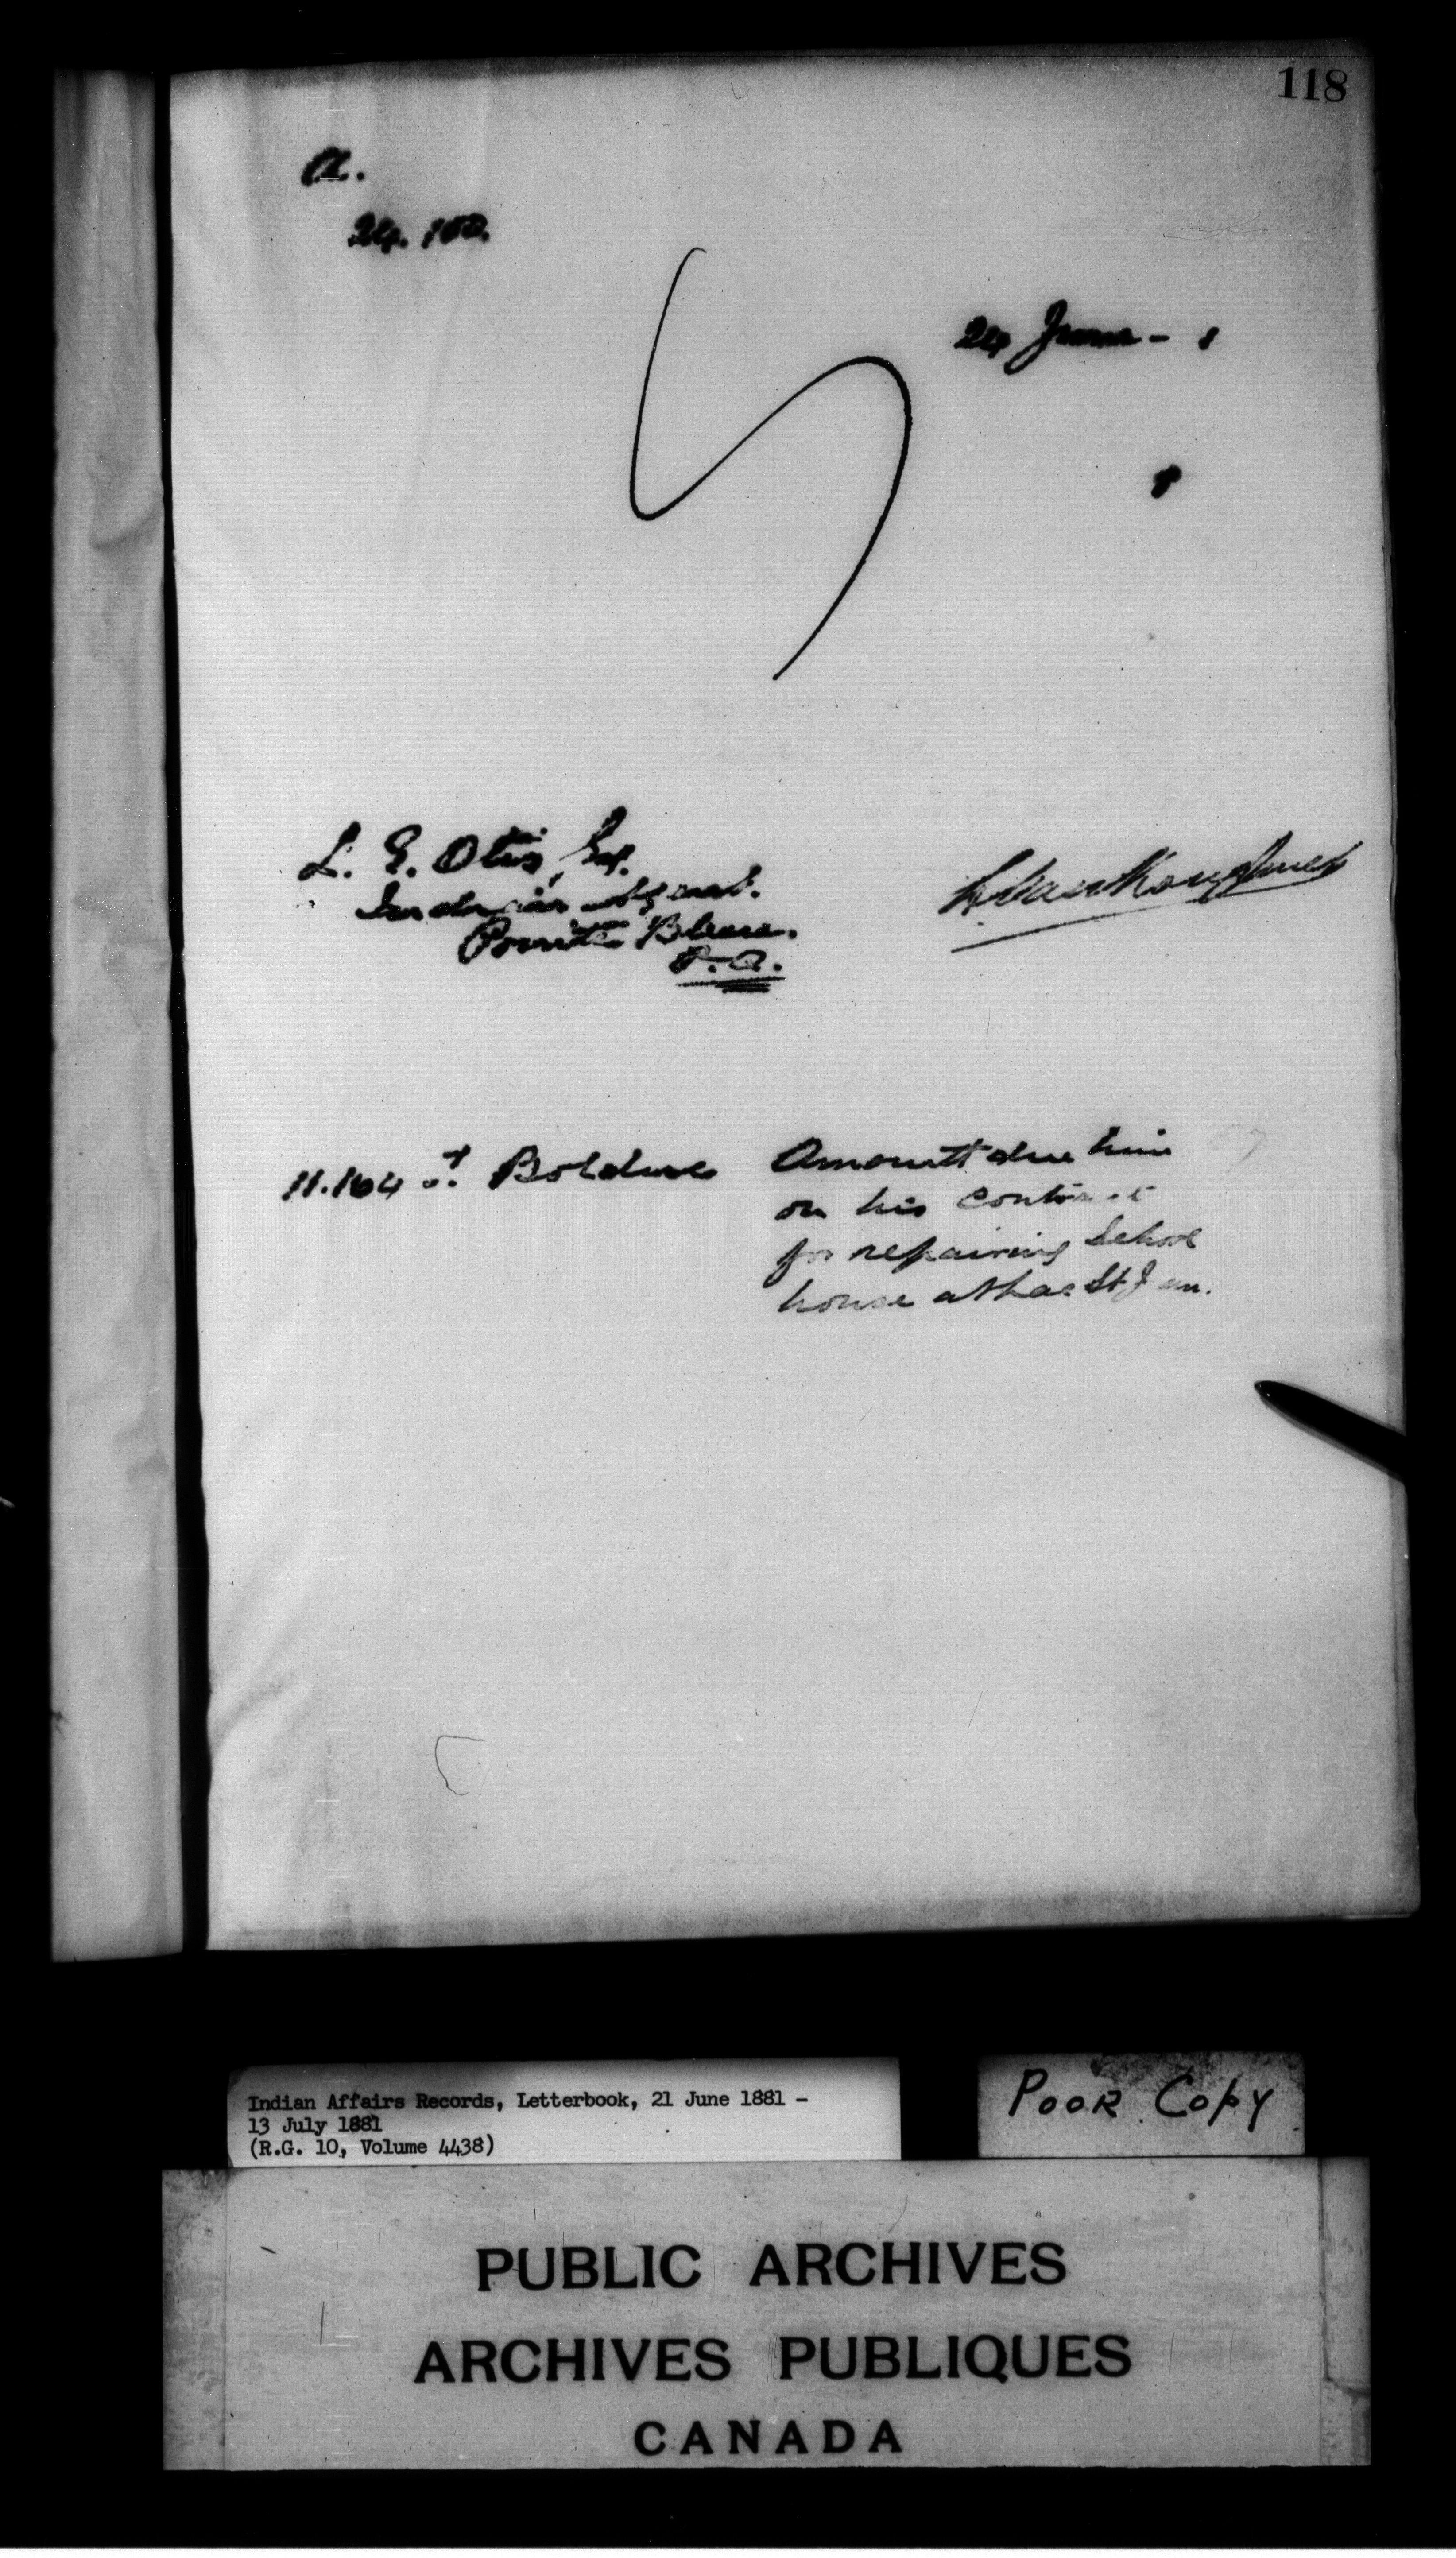 118
A.
24.100.
24 June - 1
L. E. Otis, Esq.
Indian Agent.
Pointe Bleue.
P.Q.
L Vankoughnet
11.164 J. Bolduc
Amount due him
on his contract
for repairing School
house at Lac St Jean.
Indian Affairs Records, Letterbook, 21 June 1881 -
13 July 1881
(R.G. 10, Volume 4438)
POOR COPY
PUBLIC ARCHIVES
ARCHIVES PUBLIQUES
CANADA